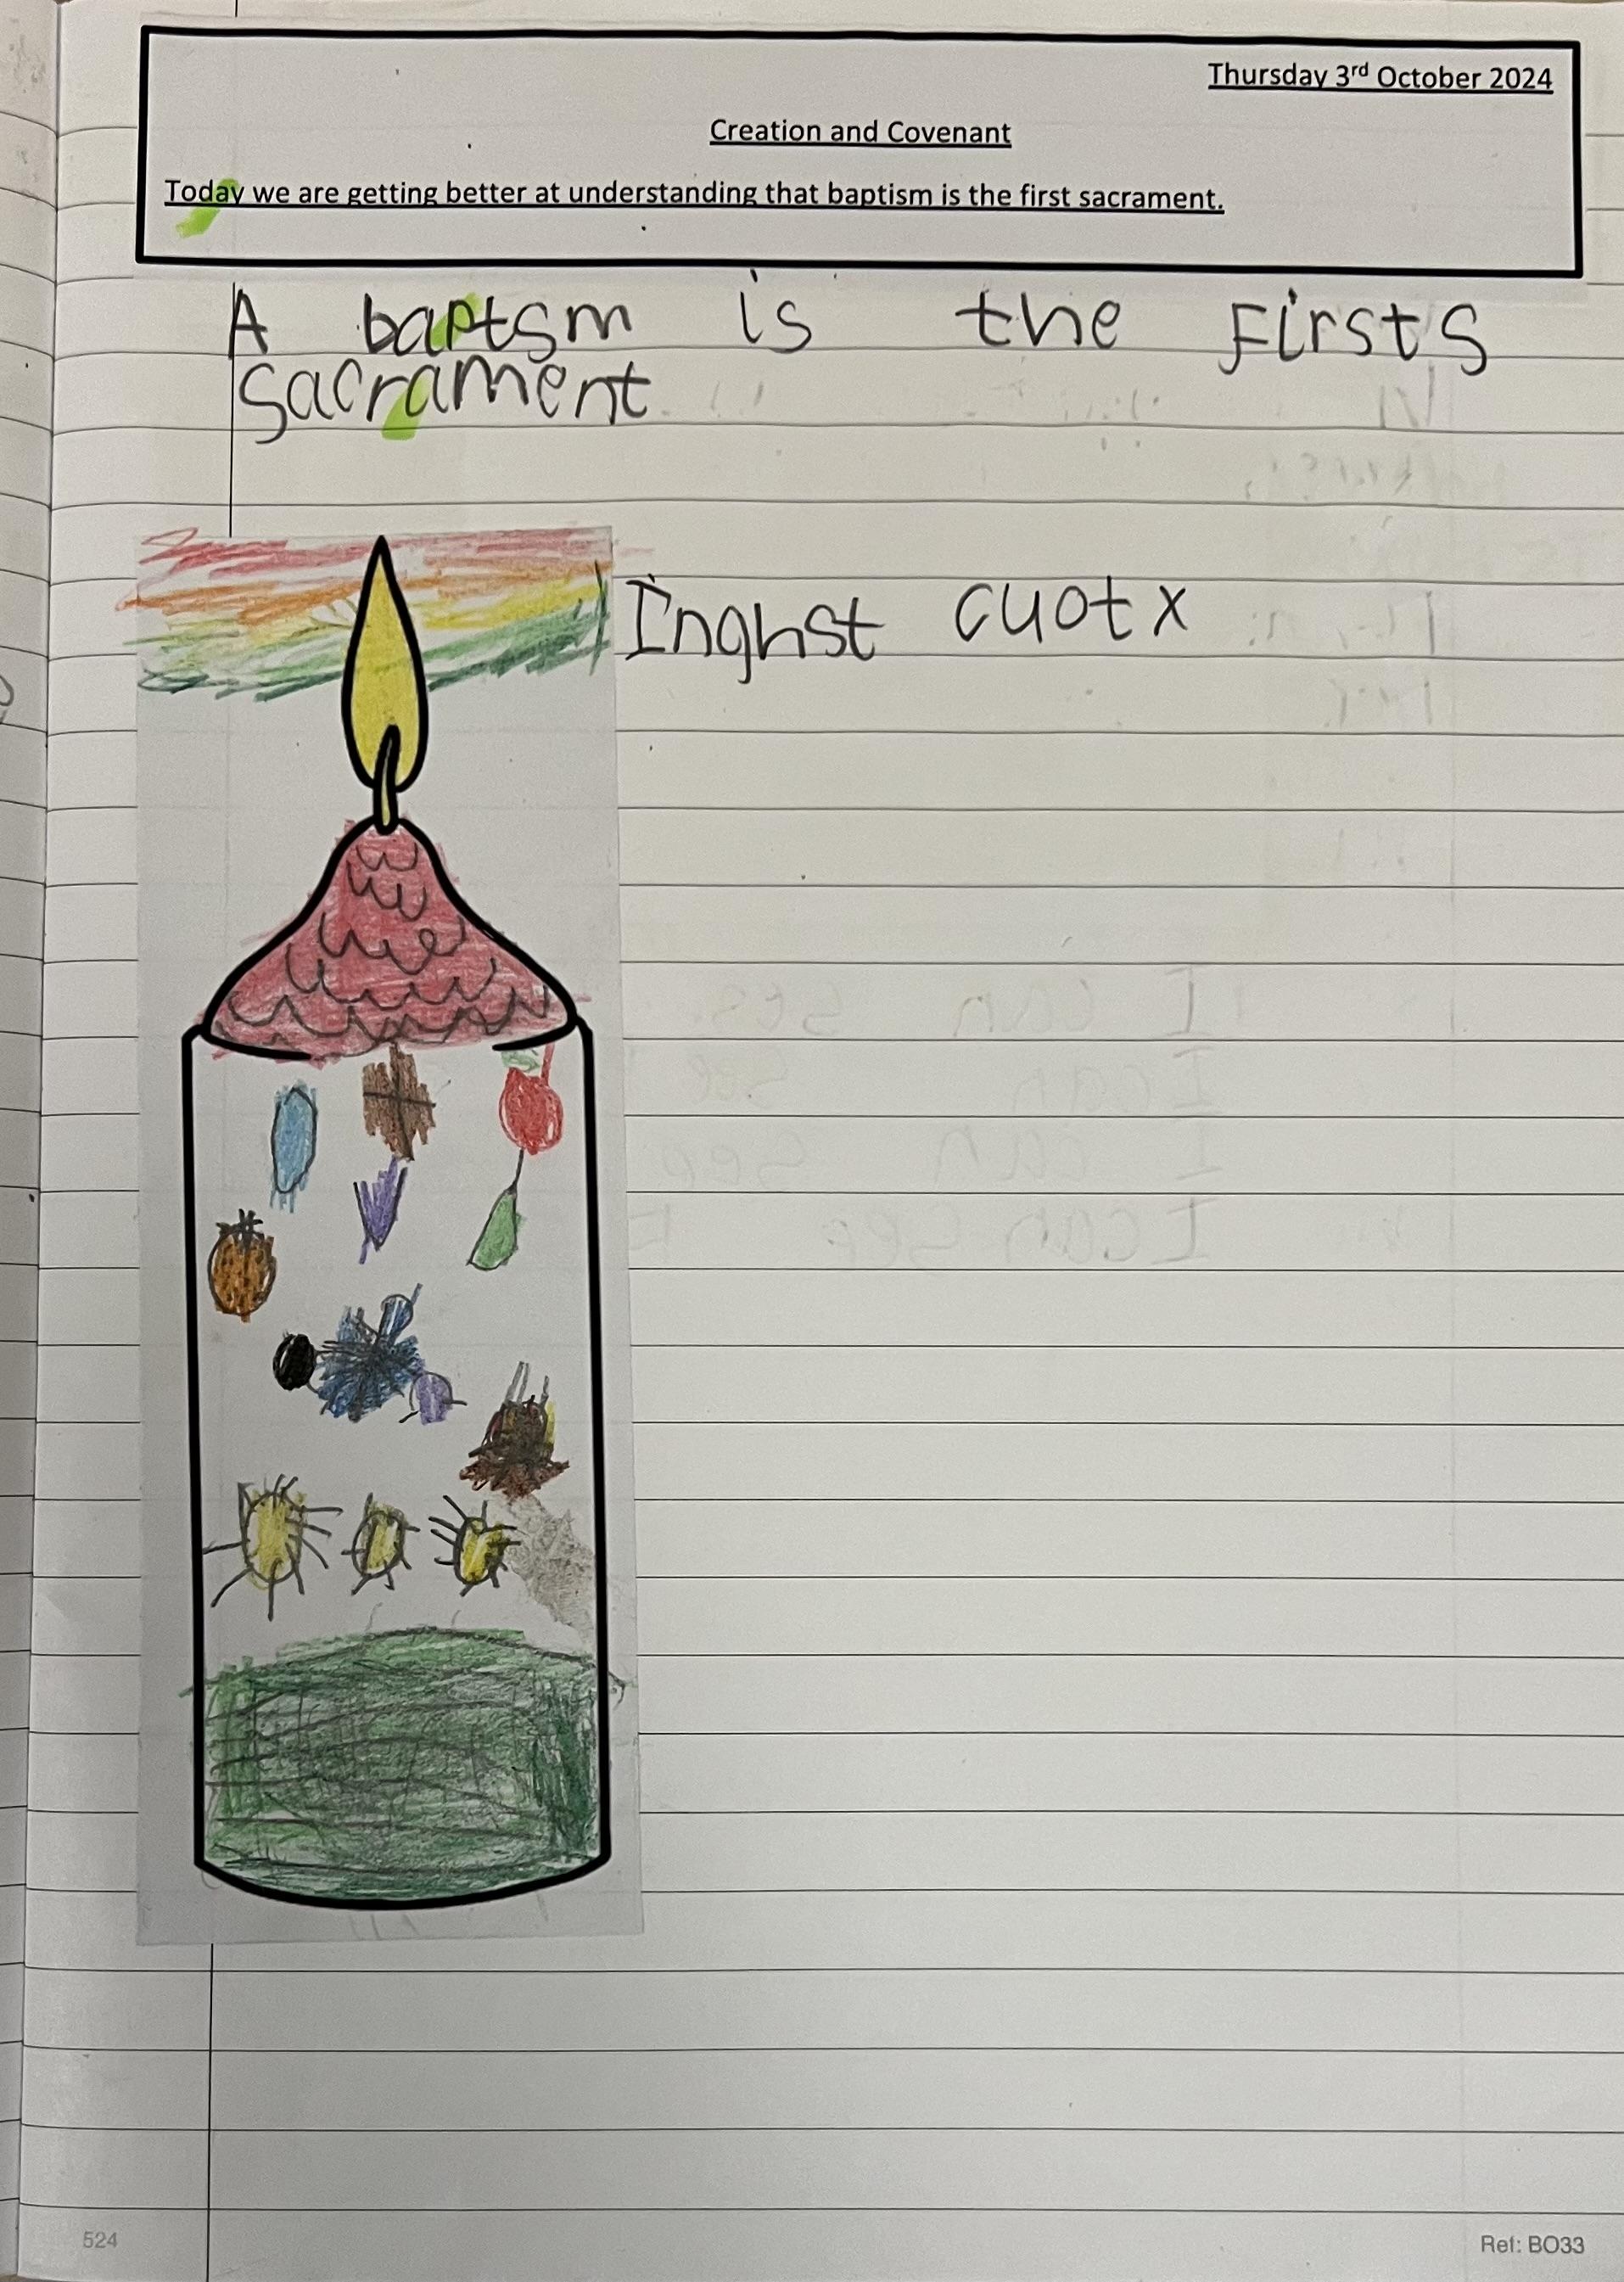 Thursday 3rd October 2024
Creation and Covenant
Today we are getting better at understanding that baptism is the first sacrament.
A baptsm is the Firsts
Sacrament
Inghst cuotx
524
Ref: BO33